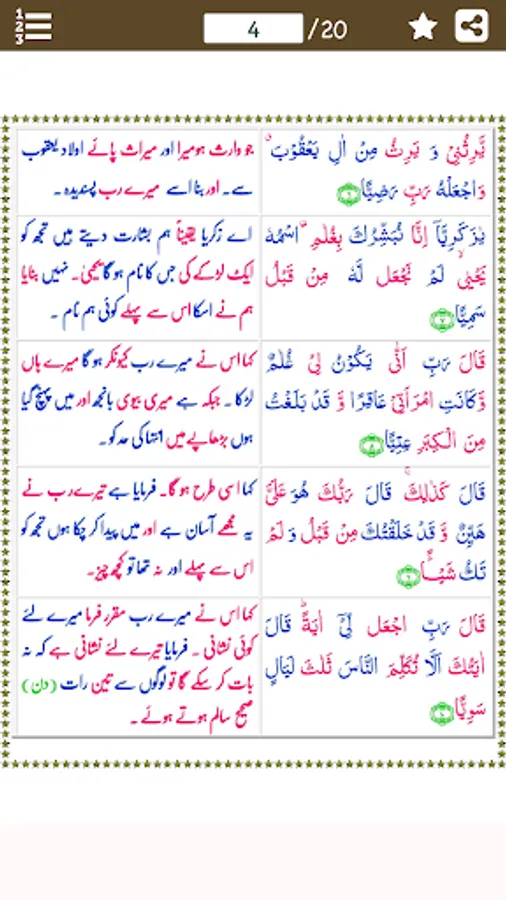 1
2
3
4 /20
يَّرِثُنِيْ وَ يَرِثُ مِنْ اٰلِ يَعْقُوْبَ ۖۗ
وَاجْعَلْهُ رَبِّ رَضِيًّا ﴿۶﴾
جو وارث ہو میرا اور میراث پائے اولاد یعقوب
سے۔ اور بنا اسے میرے رب پسندیدہ۔
يٰزَكَرِيَّاۤ اِنَّا نُبَشِّرُكَ بِغُلٰمِ ۨاسْمُهٗ
يَحْيٰى ۙ لَمْ نَجْعَلْ لَّهٗ مِنْ قَبْلُ
سَمِيًّا ﴿۷﴾
اے زکریا یقیناً ہم بشارت دیتے ہیں تجھ کو
ایک لڑکے کی جس کا نام ہو گا یحیٰی۔ نہیں بنایا
ہم نے اسکا اس سے پہلے کوئی ہم نام۔
قَالَ رَبِّ اَنّٰى يَكُوْنُ لِيْ غُلٰمٌ
وَّكَانَتِ امْرَاَتِيْ عَاقِرًا وَّ قَدْ بَلَغْتُ
مِنَ الْكِبَرِ عِتِيًّا ﴿۸﴾
کہا اس نے میرے رب کیونکر ہو گا میرے ہاں
لڑکا۔ جبکہ ہے میری بیوی بانجھ اور میں پہنچ گیا
ہوں بڑھاپے میں انتہا کی حد کو۔
قَالَ كَذٰلِكَ ۚ قَالَ رَبُّكَ هُوَ عَلَيَّ
هَيِّنٌ وَّ قَدْ خَلَقْتُكَ مِنْ قَبْلُ وَ لَمْ
تَكُ شَيْـًٔا ﴿۹﴾
کہا اسی طرح ہو گا۔ فرمایا ہے تیرے رب نے
یہ مجھے آسان ہے اور میں پیدا کر چکا ہوں تجھ کو
اس سے پہلے اور نہ تھا تو کچھ چیز۔
قَالَ رَبِّ اجْعَلْ لِّيْۤ اٰيَةً ؕ قَالَ
اٰيَتُكَ اَلَّا تُكَلِّمَ النَّاسَ ثَلٰثَ لَيَالٍ
سَوِيًّا ﴿۱۰﴾
کہا اس نے میرے رب مقرر فرما میرے لئے
کوئی نشانی۔ فرمایا تیرے لئے نشانی ہے کہ نہ
بات کر سکے گا تو لوگوں سے تین رات (دن)
صحیح سالم ہوتے ہوئے۔